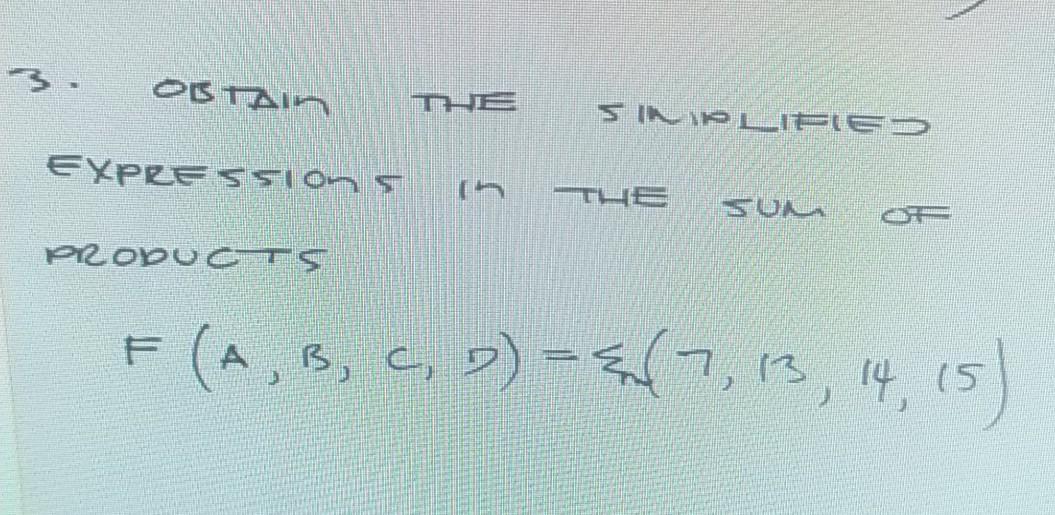 3. OBTAIN THE SIMPLIFIED
EXPRESSIONS IN THE SUM OF
PRODUCTS
F (A, B, C, D) = Σm(7, 13, 14, 15)